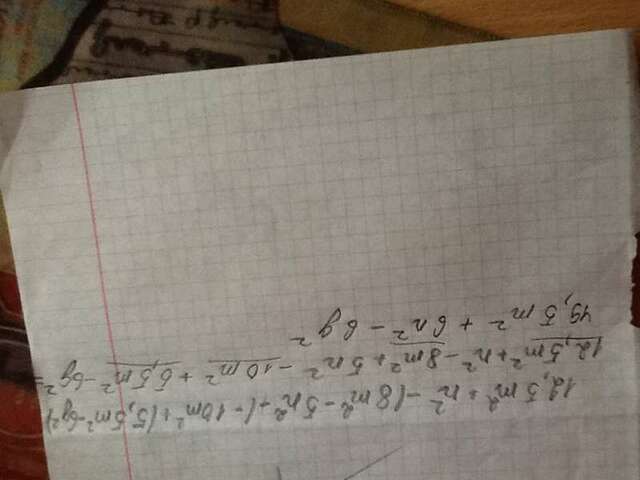 12,5m² + n² - (8m² - 5n² + (- 10m² + (5,5m² - 6g²)
12,5m² + n² - 8m² + 5n² - 10m² + 6,5m² - 6g² =
49,5m² + 6n² - 6g²